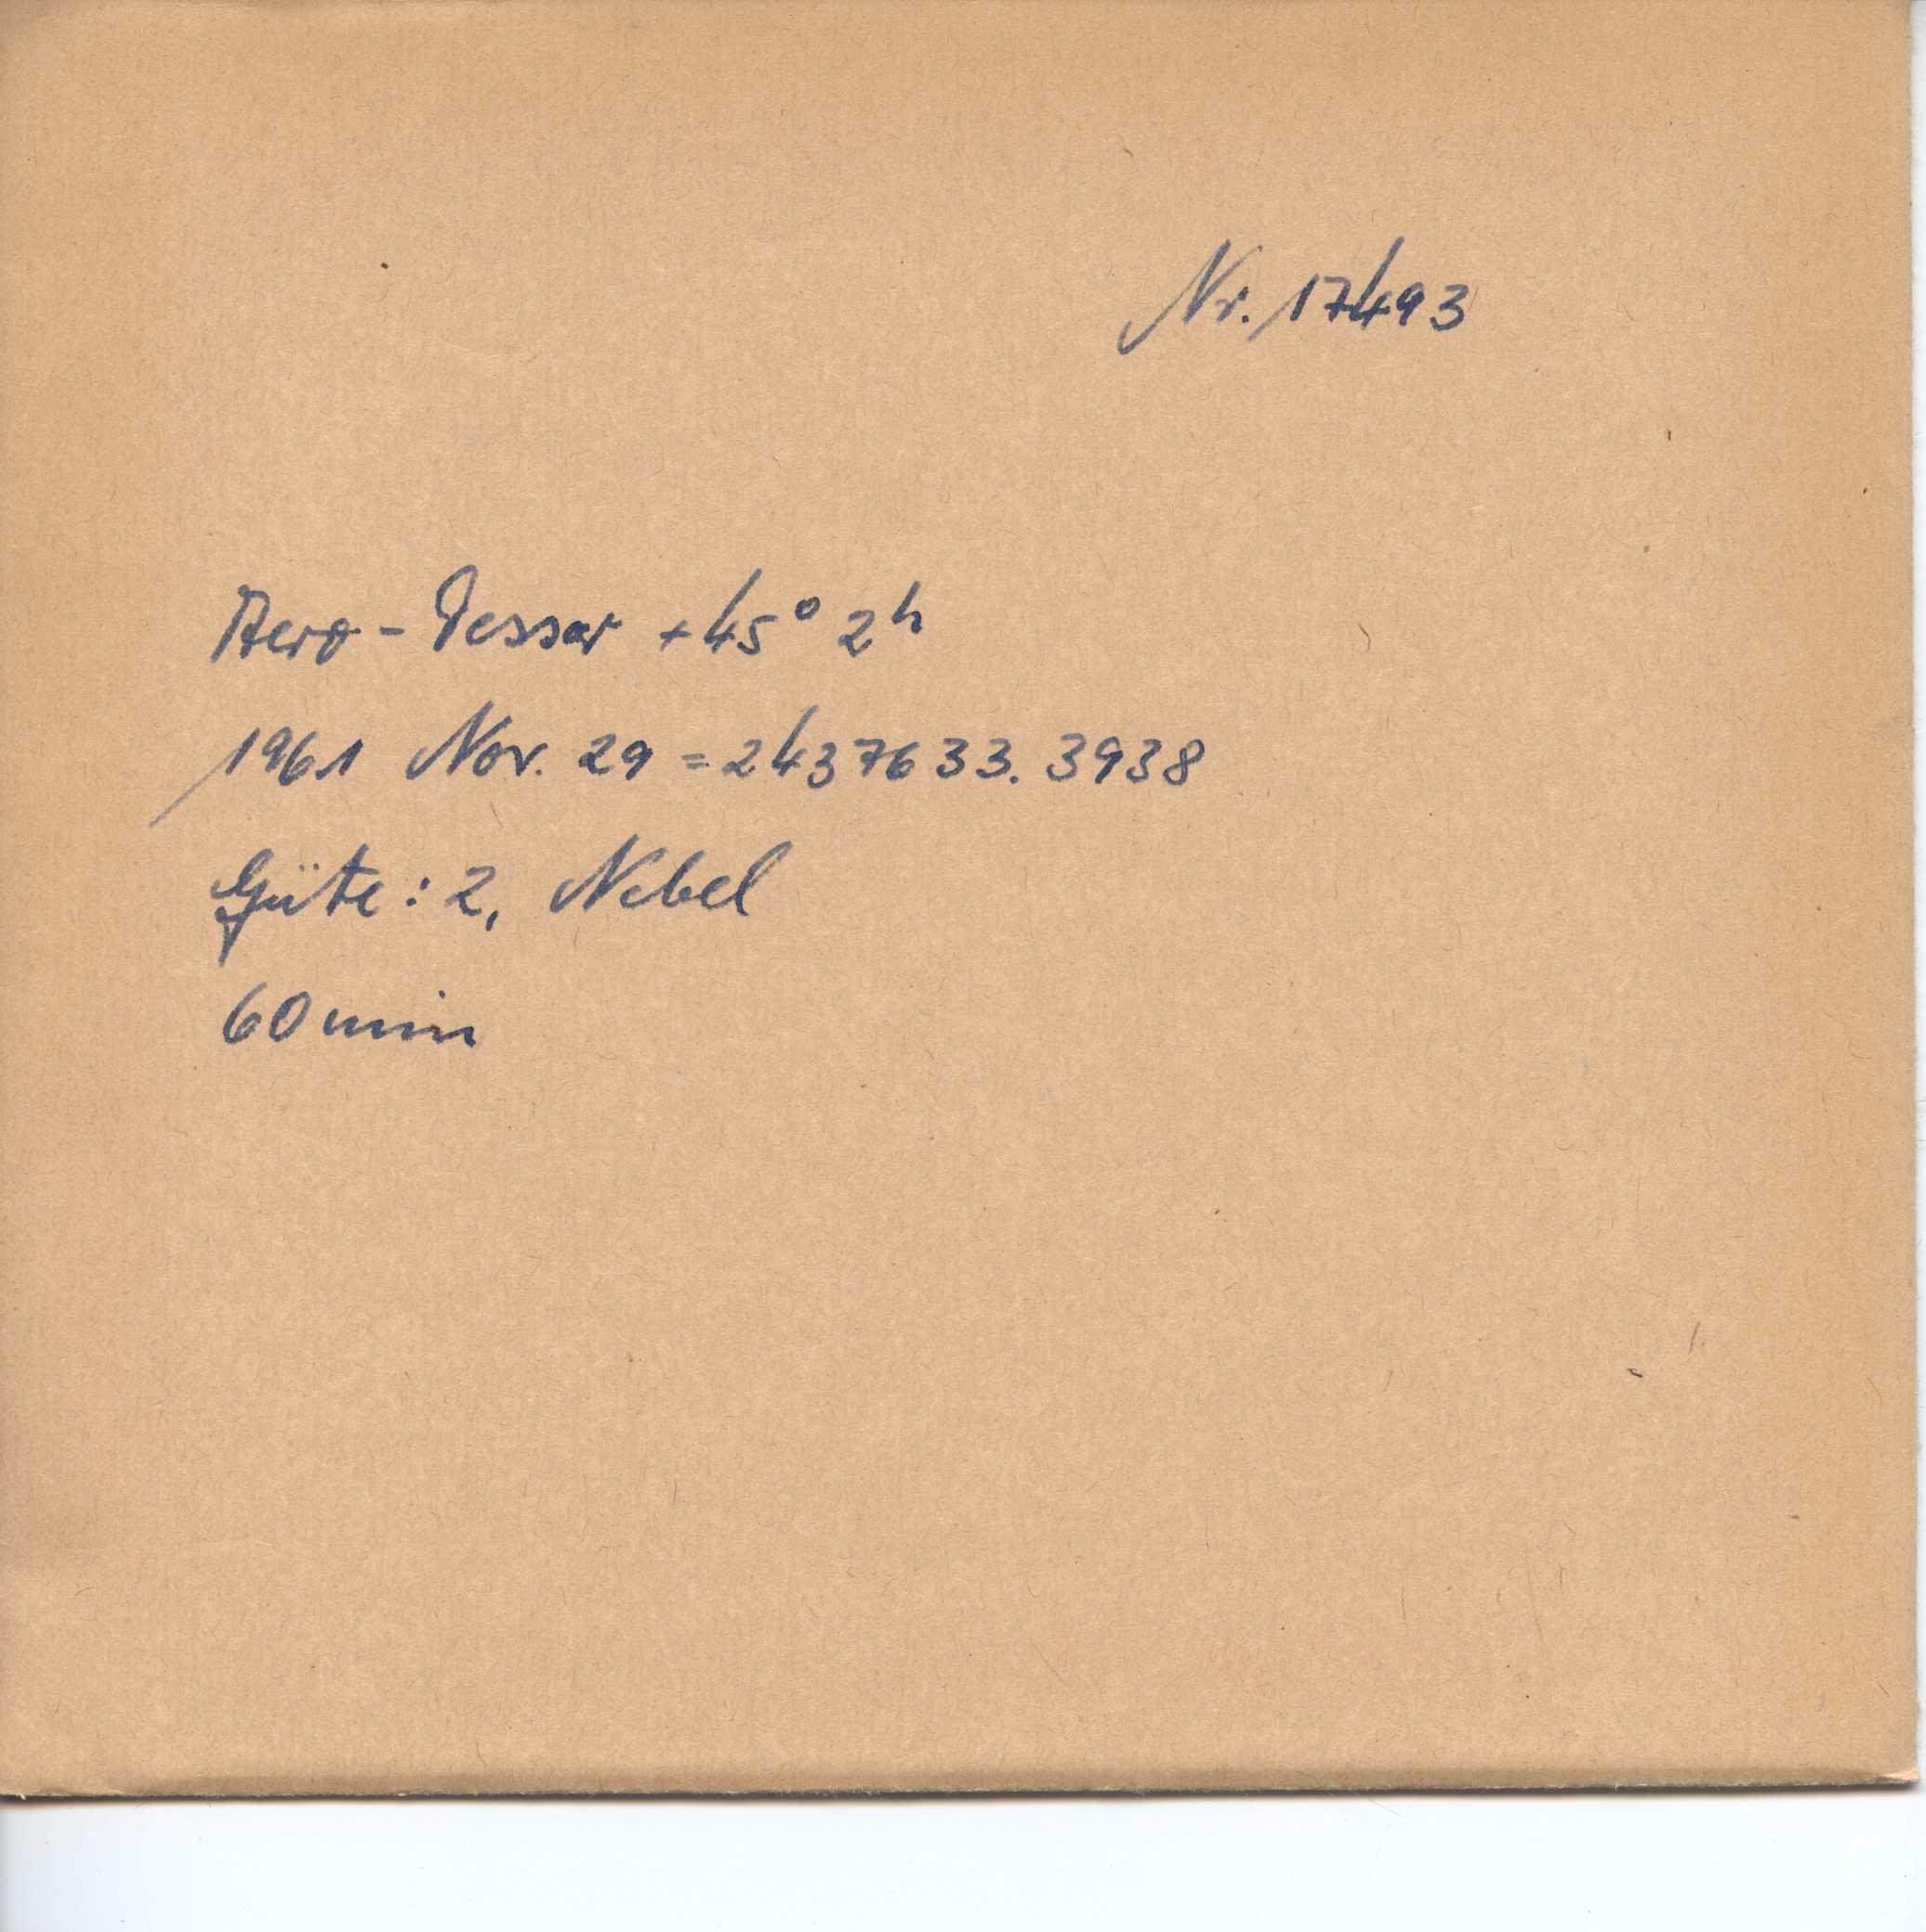 Nr. 17493
Aero-Tessar +45° 2h
1961 Nov. 29 = 2437633.3938
Güte: 2, Nebel
60 min